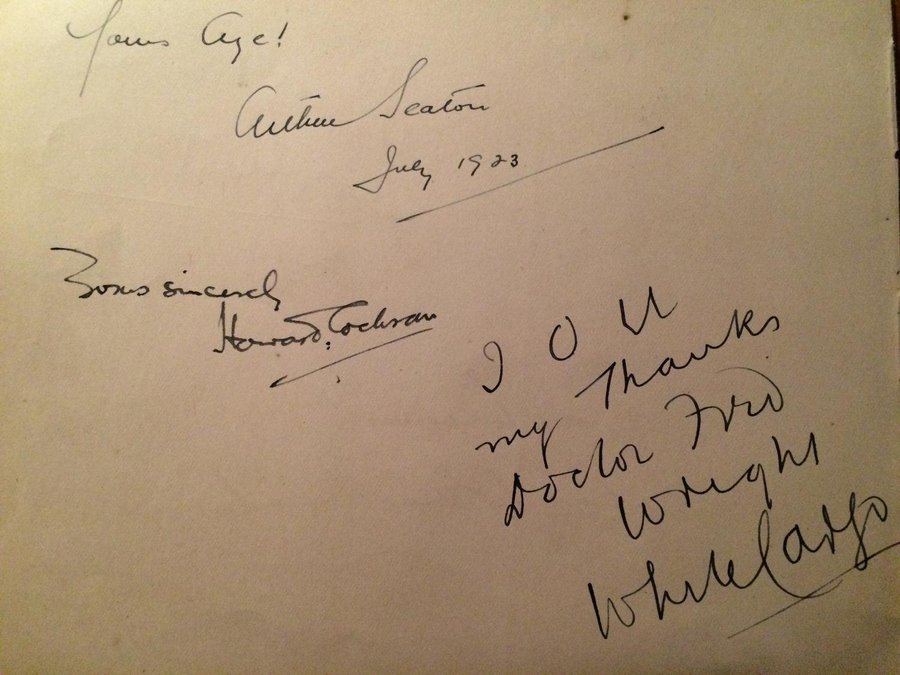 Yours Aye!
Arthur Seaton
July 1923
Yours sincerely
Howard Cochran
I O U
my Thanks
Doctor Fred
Wright
White Cargo